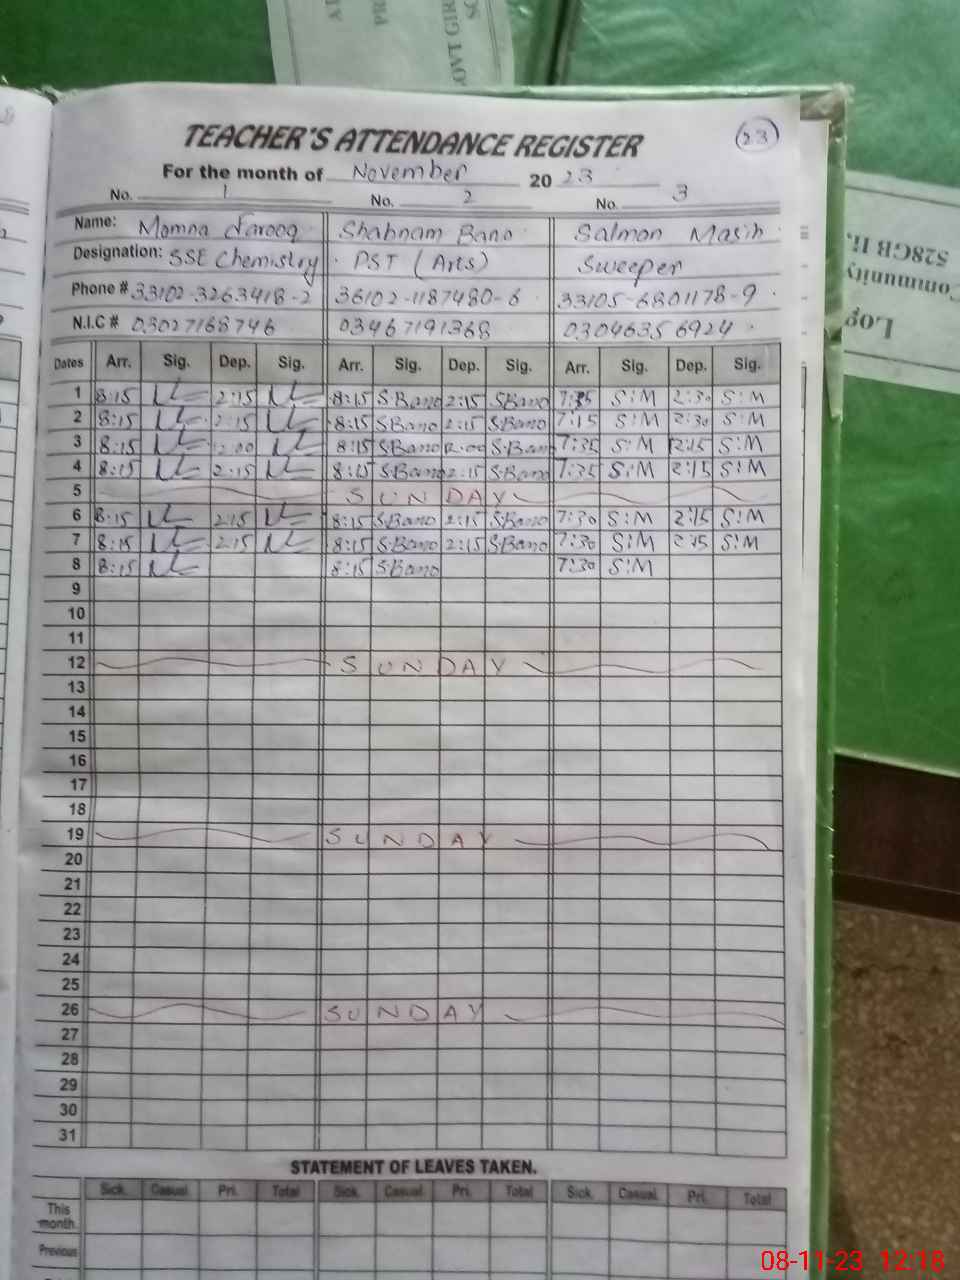 SC
GOVT GIRI
PRI
AL
TEACHER'S ATTENDANCE REGISTER
23
For the month of November 20 23
No. 1 No. 2 No. 3
Name: Momna Farooq Shabnam Bano Salmon Masih
Designation: SSE Chemistry PST (Arts) Sweeper
Phone # 33102-3263418-2 36102-1187480-6 33105-6801178-9
N.I.C # 03027168746 03467191368 03046356924
Dates Arr. Sig. Dep. Sig. Arr. Sig. Dep. Sig. Arr. Sig. Dep. Sig.
1 8:15 2:15 8:15 S.Bano 2:15 S.Bano S:M 2:30 S:M
2 8:15 2:15 8:15 S.Bano 2:15 S.Bano 7:15 S:M 2:30 S:M
3 8:15 12:00 8:15 S.Bano 12:00 S.Bano 7:35 S:M S:M
4 8:15 2:15 8:15 S.Bano 2:15 S.Bano 7:35 S:M 2:15 S:M
5 SUNDAY
6 8:15 2:15 8:15 S.Bano 2:15 S.Bano 7:30 S:M 2:15 S:M
7 8:15 2:15 8:15 S.Bano 2:15 S.Bano 7:30 S:M 2:15 S:M
8 8:15 8:15 S.Bano 7:30 S:M
9
10
11
12 SUNDAY
13
14
15
16
17
18
19 SUNDAY
20
21
22
23
24
25
26 SUNDAY
27
28
29
30
31
STATEMENT OF LEAVES TAKEN.
Sick. Casual. Pri. Total Sick. Casual. Pri. Total Sick. Casual. Pri. Total
This month.
Previous
Log
Community
528GB II,
08-11-23 12:18